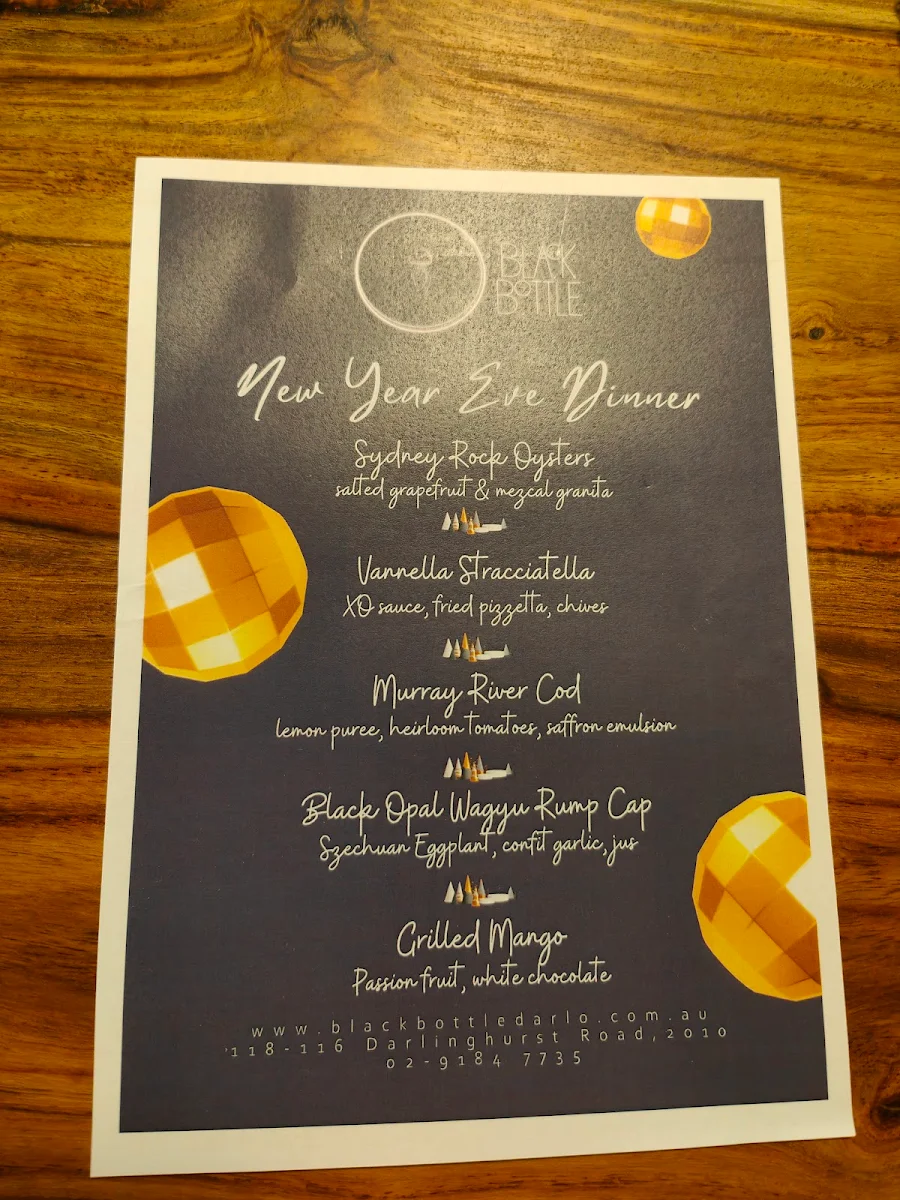 BLACK
BOTTLE
New Year Eve Dinner
Sydney Rock Oysters
salted grapefruit & mezcal granita
Vannella Stracciatella
XO sauce, fried pizzetta, chives
Murray River Cod
lemon puree, heirloom tomatoes, saffron emulsion
Black Opal Wagyu Rump Cap
Szechuan Eggplant, confit garlic, jus
Grilled Mango
Passion fruit, white chocolate
www.blackbottledarlo.com.au
'118-116 Darlinghurst Road,2010
02-9184 7735